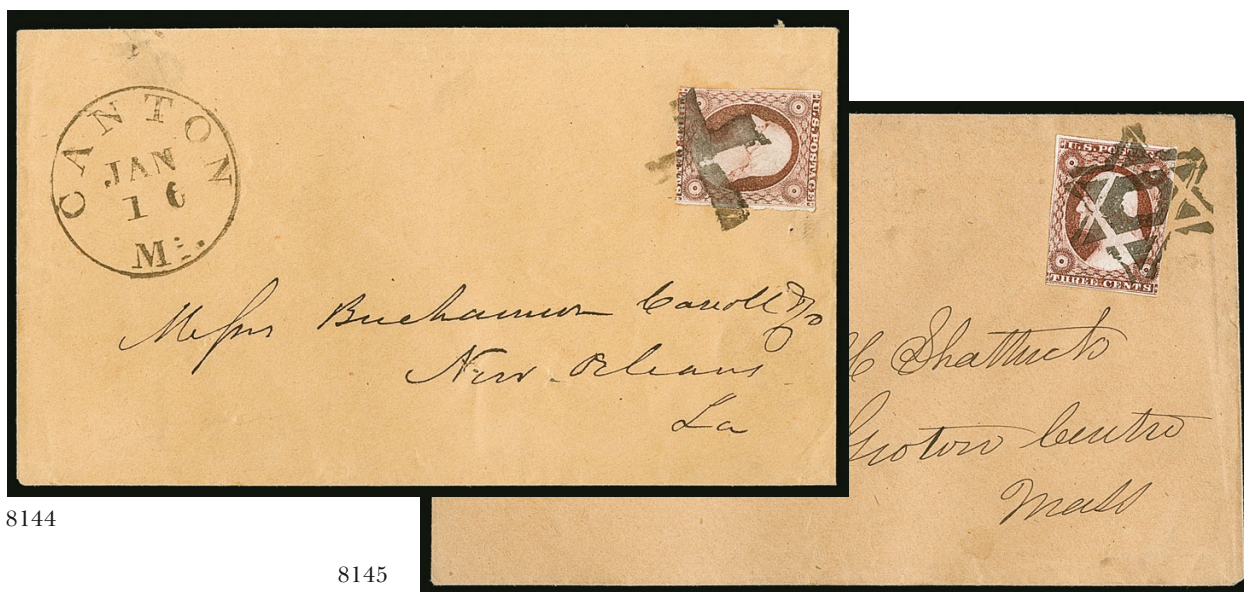 CANTON
JAN
16
Ms.
U.S. POSTAGE
Messrs Buchannon Carroll & Co
New Orleans
La
U.S. POSTAGE
THREE CENTS
H Shattuck
Groton Centre
Mass
8144
8145